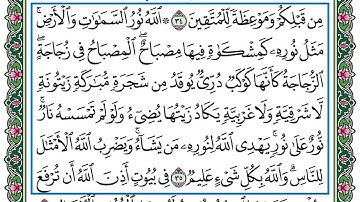 مِن قَبْلِكُمْ وَمَوْعِظَةً لِّلْمُتَّقِينَ ٣٤ ۞ ٱللَّهُ نُورُ ٱلسَّمَٰوَٰتِ وَٱلْأَرْضِ ۚ
مَثَلُ نُورِهِۦ كَمِشْكَوٰةٍ فِيهَا مِصْبَاحٌ ۖ ٱلْمِصْبَاحُ فِى زُجَاجَةٍ ۖ
ٱلزُّجَاجَةُ كَأَنَّهَا كَوْكَبٌ دُرِّىٌّ يُوقَدُ مِن شَجَرَةٍ مُّبَٰرَكَةٍ زَيْتُونَةٍ
لَّا شَرْقِيَّةٍ وَلَا غَرْبِيَّةٍ يَكَادُ زَيْتُهَا يُضِىٓءُ وَلَوْ لَمْ تَمْسَسْهُ نَارٌ ۚ
نُّورٌ عَلَىٰ نُورٍ ۗ يَهْدِى ٱللَّهُ لِنُورِهِۦ مَن يَشَآءُ ۚ وَيَضْرِبُ ٱللَّهُ ٱلْأَمْثَٰلَ
لِلنَّاسِ ۗ وَٱللَّهُ بِكُلِّ شَىْءٍ عَلِيمٌ ٣٥ فِى بُيُوتٍ أَذِنَ ٱللَّهُ أَن تُرْفَعَ